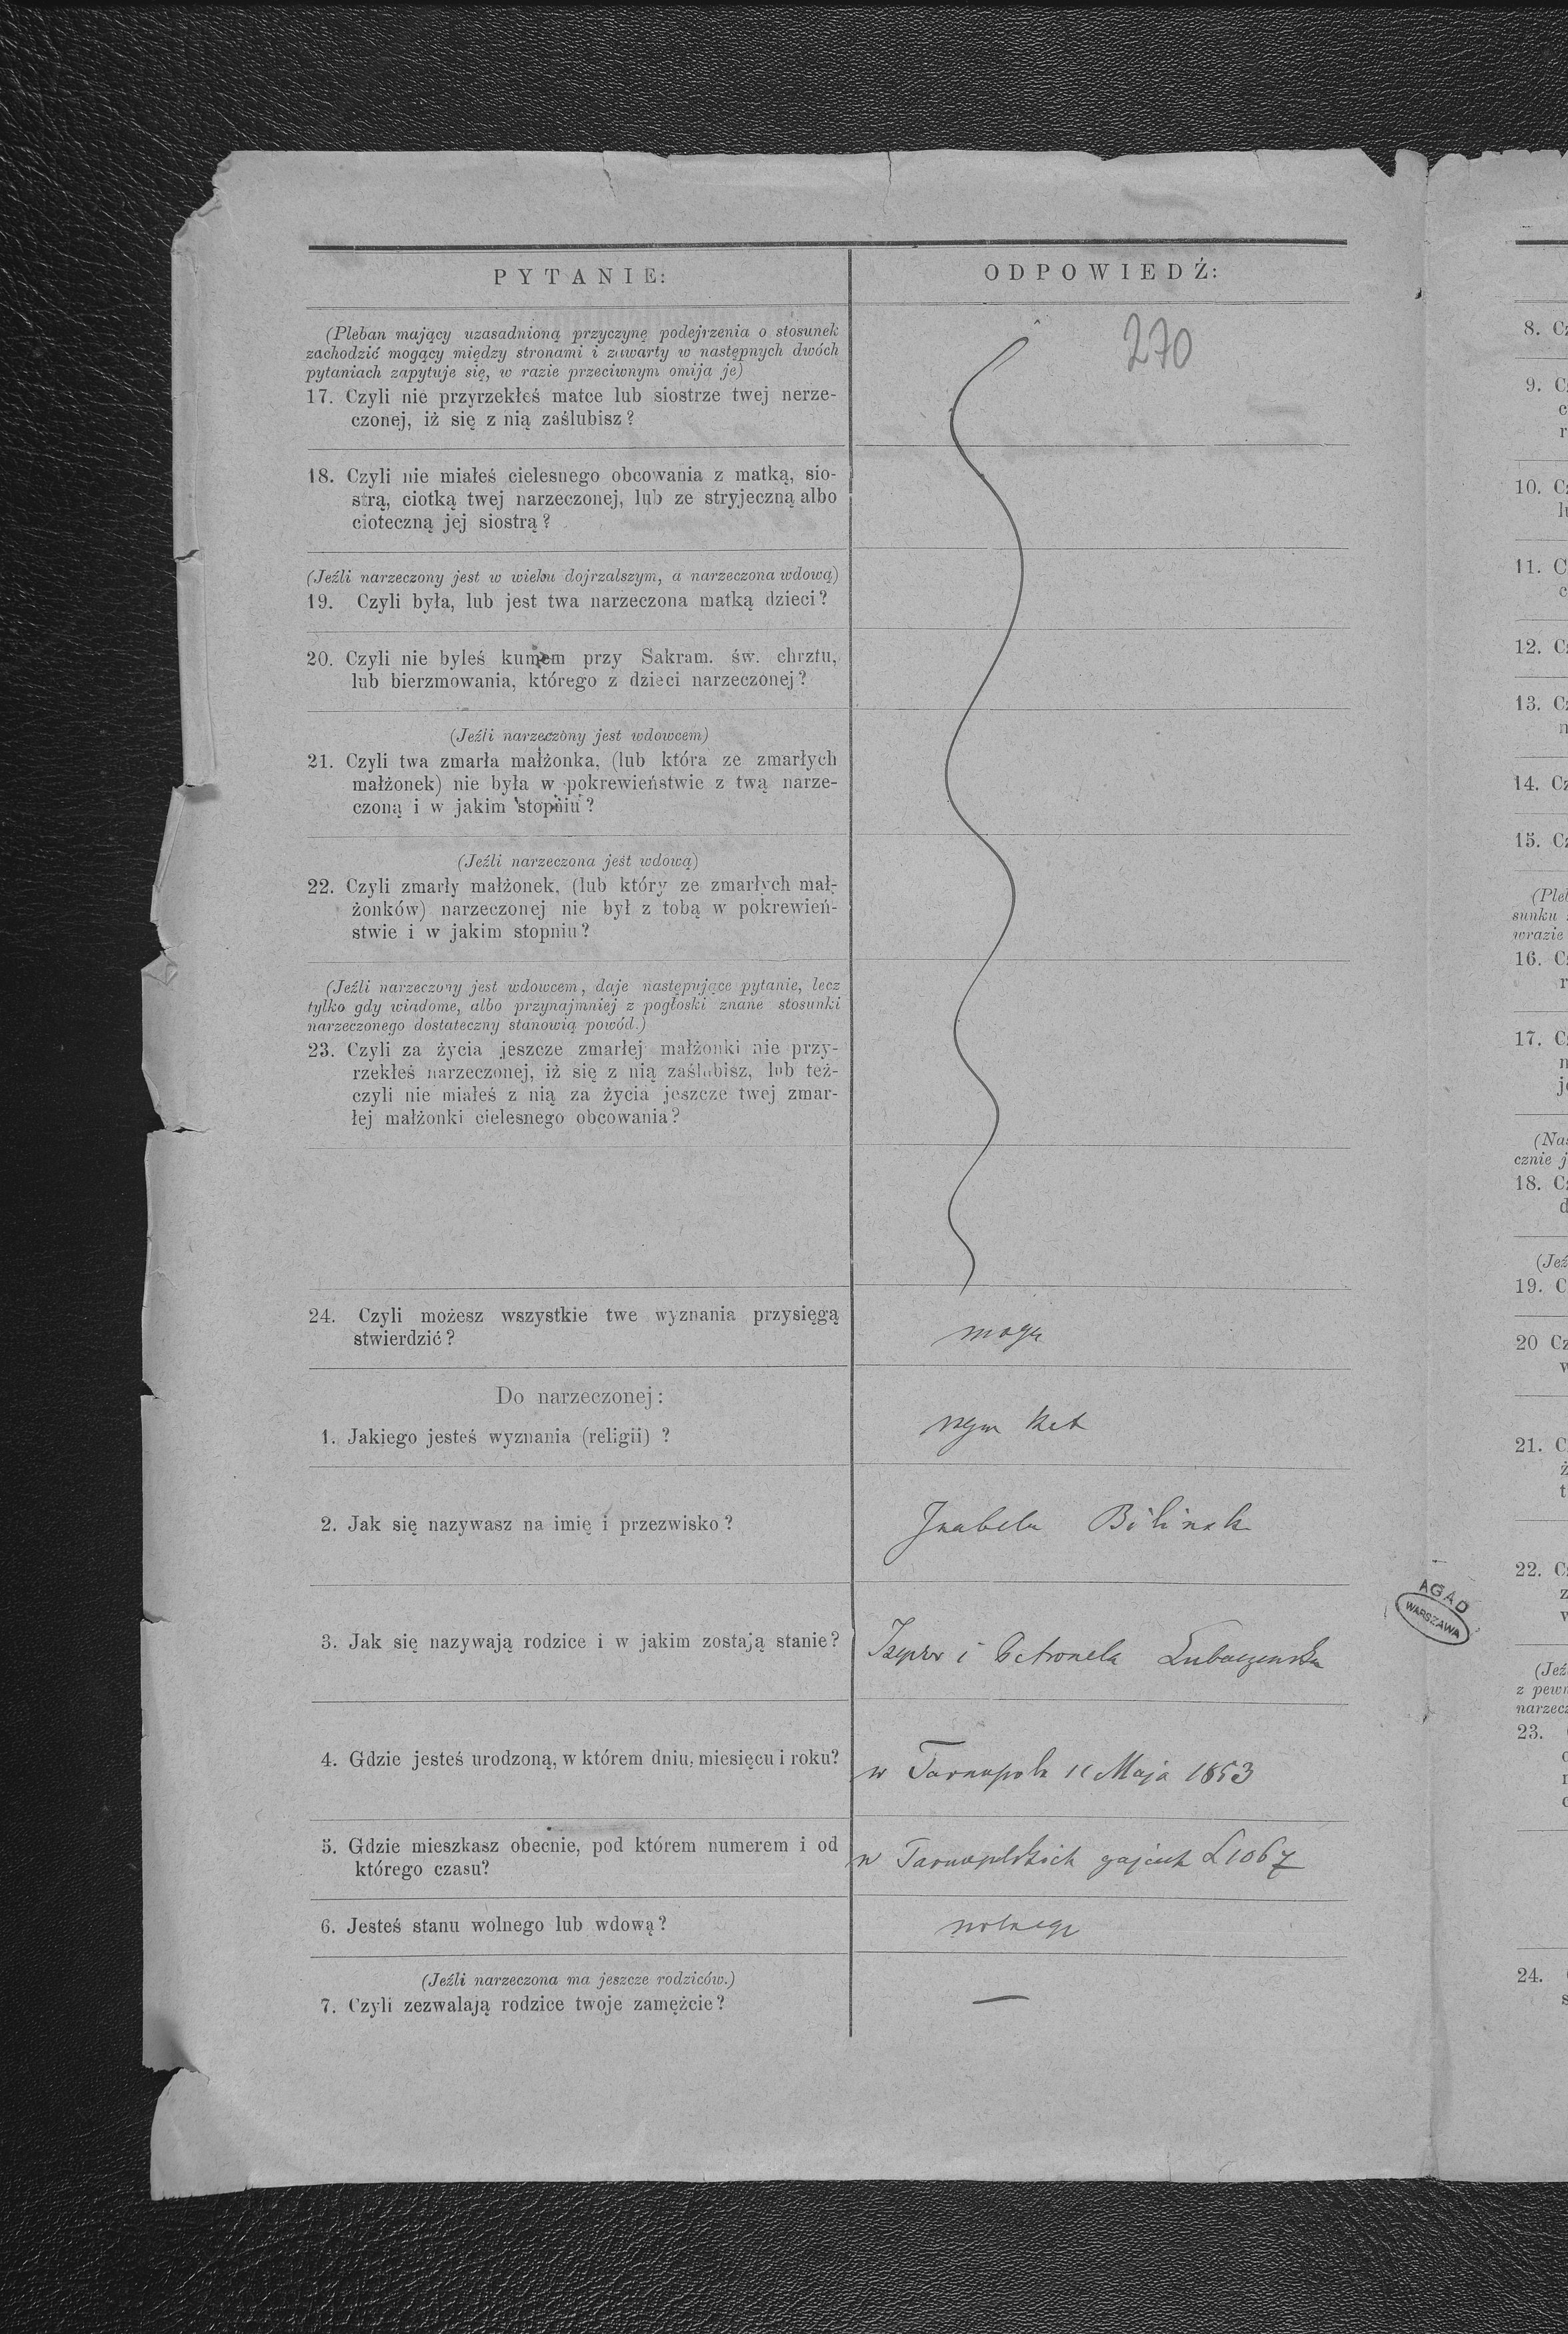 PYTANIE:
ODPOWIEDŹ:
270
(Pleban mający uzasadnioną przyczynę podejrzenia o stosunek
zachodzić mogący między stronami i zawarty w następnych dwóch
pytaniach zapytuje się, w razie przeciwnym omija je)
17. Czyli nie przyrzekłeś matce lub siostrze twej nerze-
czonej, iż się z nią zaślubisz?
18. Czyli nie miałeś cielesnego obcowania z matką, sio-
strą, ciotką twej narzeczonej, lub ze stryjeczną albo
cioteczną jej siostrą?
(Jeźli narzeczony jest w wieku dojrzalszym, a narzeczona wdową)
19. Czyli była, lub jest twa narzeczona matką dzieci?
20. Czyli nie byleś kumem przy Sakram. św. chrztu,
lub bierzmowania, którego z dzieci narzeczonej?
(Jeźli narzeczony jest wdowcem)
21. Czyli twa zmarła małżonka, (lub która ze zmarłych
małżonek) nie była w pokrewieństwie z twą narze-
czoną i w jakim stopniu?
(Jeźli narzeczona jest wdową)
22. Czyli zmarły małżonek, (lub który ze zmarłych mał-
żonków) narzeczonej nie był z tobą w pokrewień-
stwie i w jakim stopniu?
(Jeźli narzeczony jest wdowcem, daje następujące pytanie, lecz
tylko gdy wiadome, albo przynajmniej z pogłoski znane stosunki
narzeczonego dostateczny stanowią powód.)
23. Czyli za życia jeszcze zmarłej małżonki nie przy-
rzekłeś narzeczonej, iż się z nią zaślubisz, lub też-
czyli nie miałeś z nią za życia jeszcze twej zmar-
łej małżonki cielesnego obcowania?
24. Czyli możesz wszystkie twe wyznania przysięgą
stwierdzić?
mogę
Do narzeczonej:
1. Jakiego jesteś wyznania (religii) ?
rzym kat
2. Jak się nazywasz na imię i przezwisko?
Izabela Bilinsk
3. Jak się nazywają rodzice i w jakim zostają stanie?
i Petronela
4. Gdzie jesteś urodzoną, w którem dniu, miesięcu i roku?
w Tarnopolu 11 Maja 1853
5. Gdzie mieszkasz obecnie, pod którem numerem i od
którego czasu?
w Tarnopolskich gajach L 1067
6. Jesteś stanu wolnego lub wdową?
wolnego
(Jeźli narzeczona ma jeszcze rodziców.)
7. Czyli zezwalają rodzice twoje zamężcie?
—
AGAD
WARSZAWA
8. C
9. C
c
r
10. C
l
11. C
c
12. C
13. C
n
14. C
15. C
(Ple
sunku
wrazie
16. C
r
17. C
n
j
(Na
cznie j
18. C
d
(Jeź
19. C
20 C
w
21. C
ż
t
22. C
z
w
(Jeź
z pew
narzec
23.
24.
s